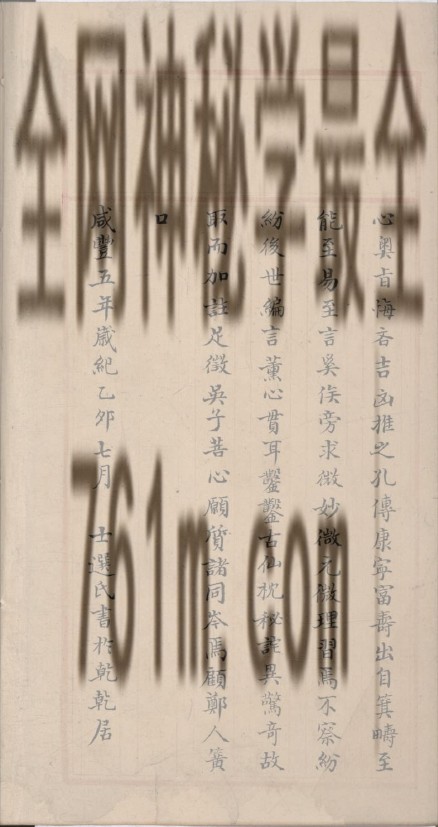 心奥旨悔吝吉凶推之孔傳康寧富壽出自箕疇至
能至易至言奚俟旁求微妙微元微理習焉不察紛
紛後世編言薰心貫耳鑿鑿古仙枕秘詫異驚奇故
取而加註足徵吳子苦心願質諸同岑焉顧鄭人簧
口
咸豐五年歲紀乙夘七月 士選氏書於乾乾居
全网神秘学最全
761m.com